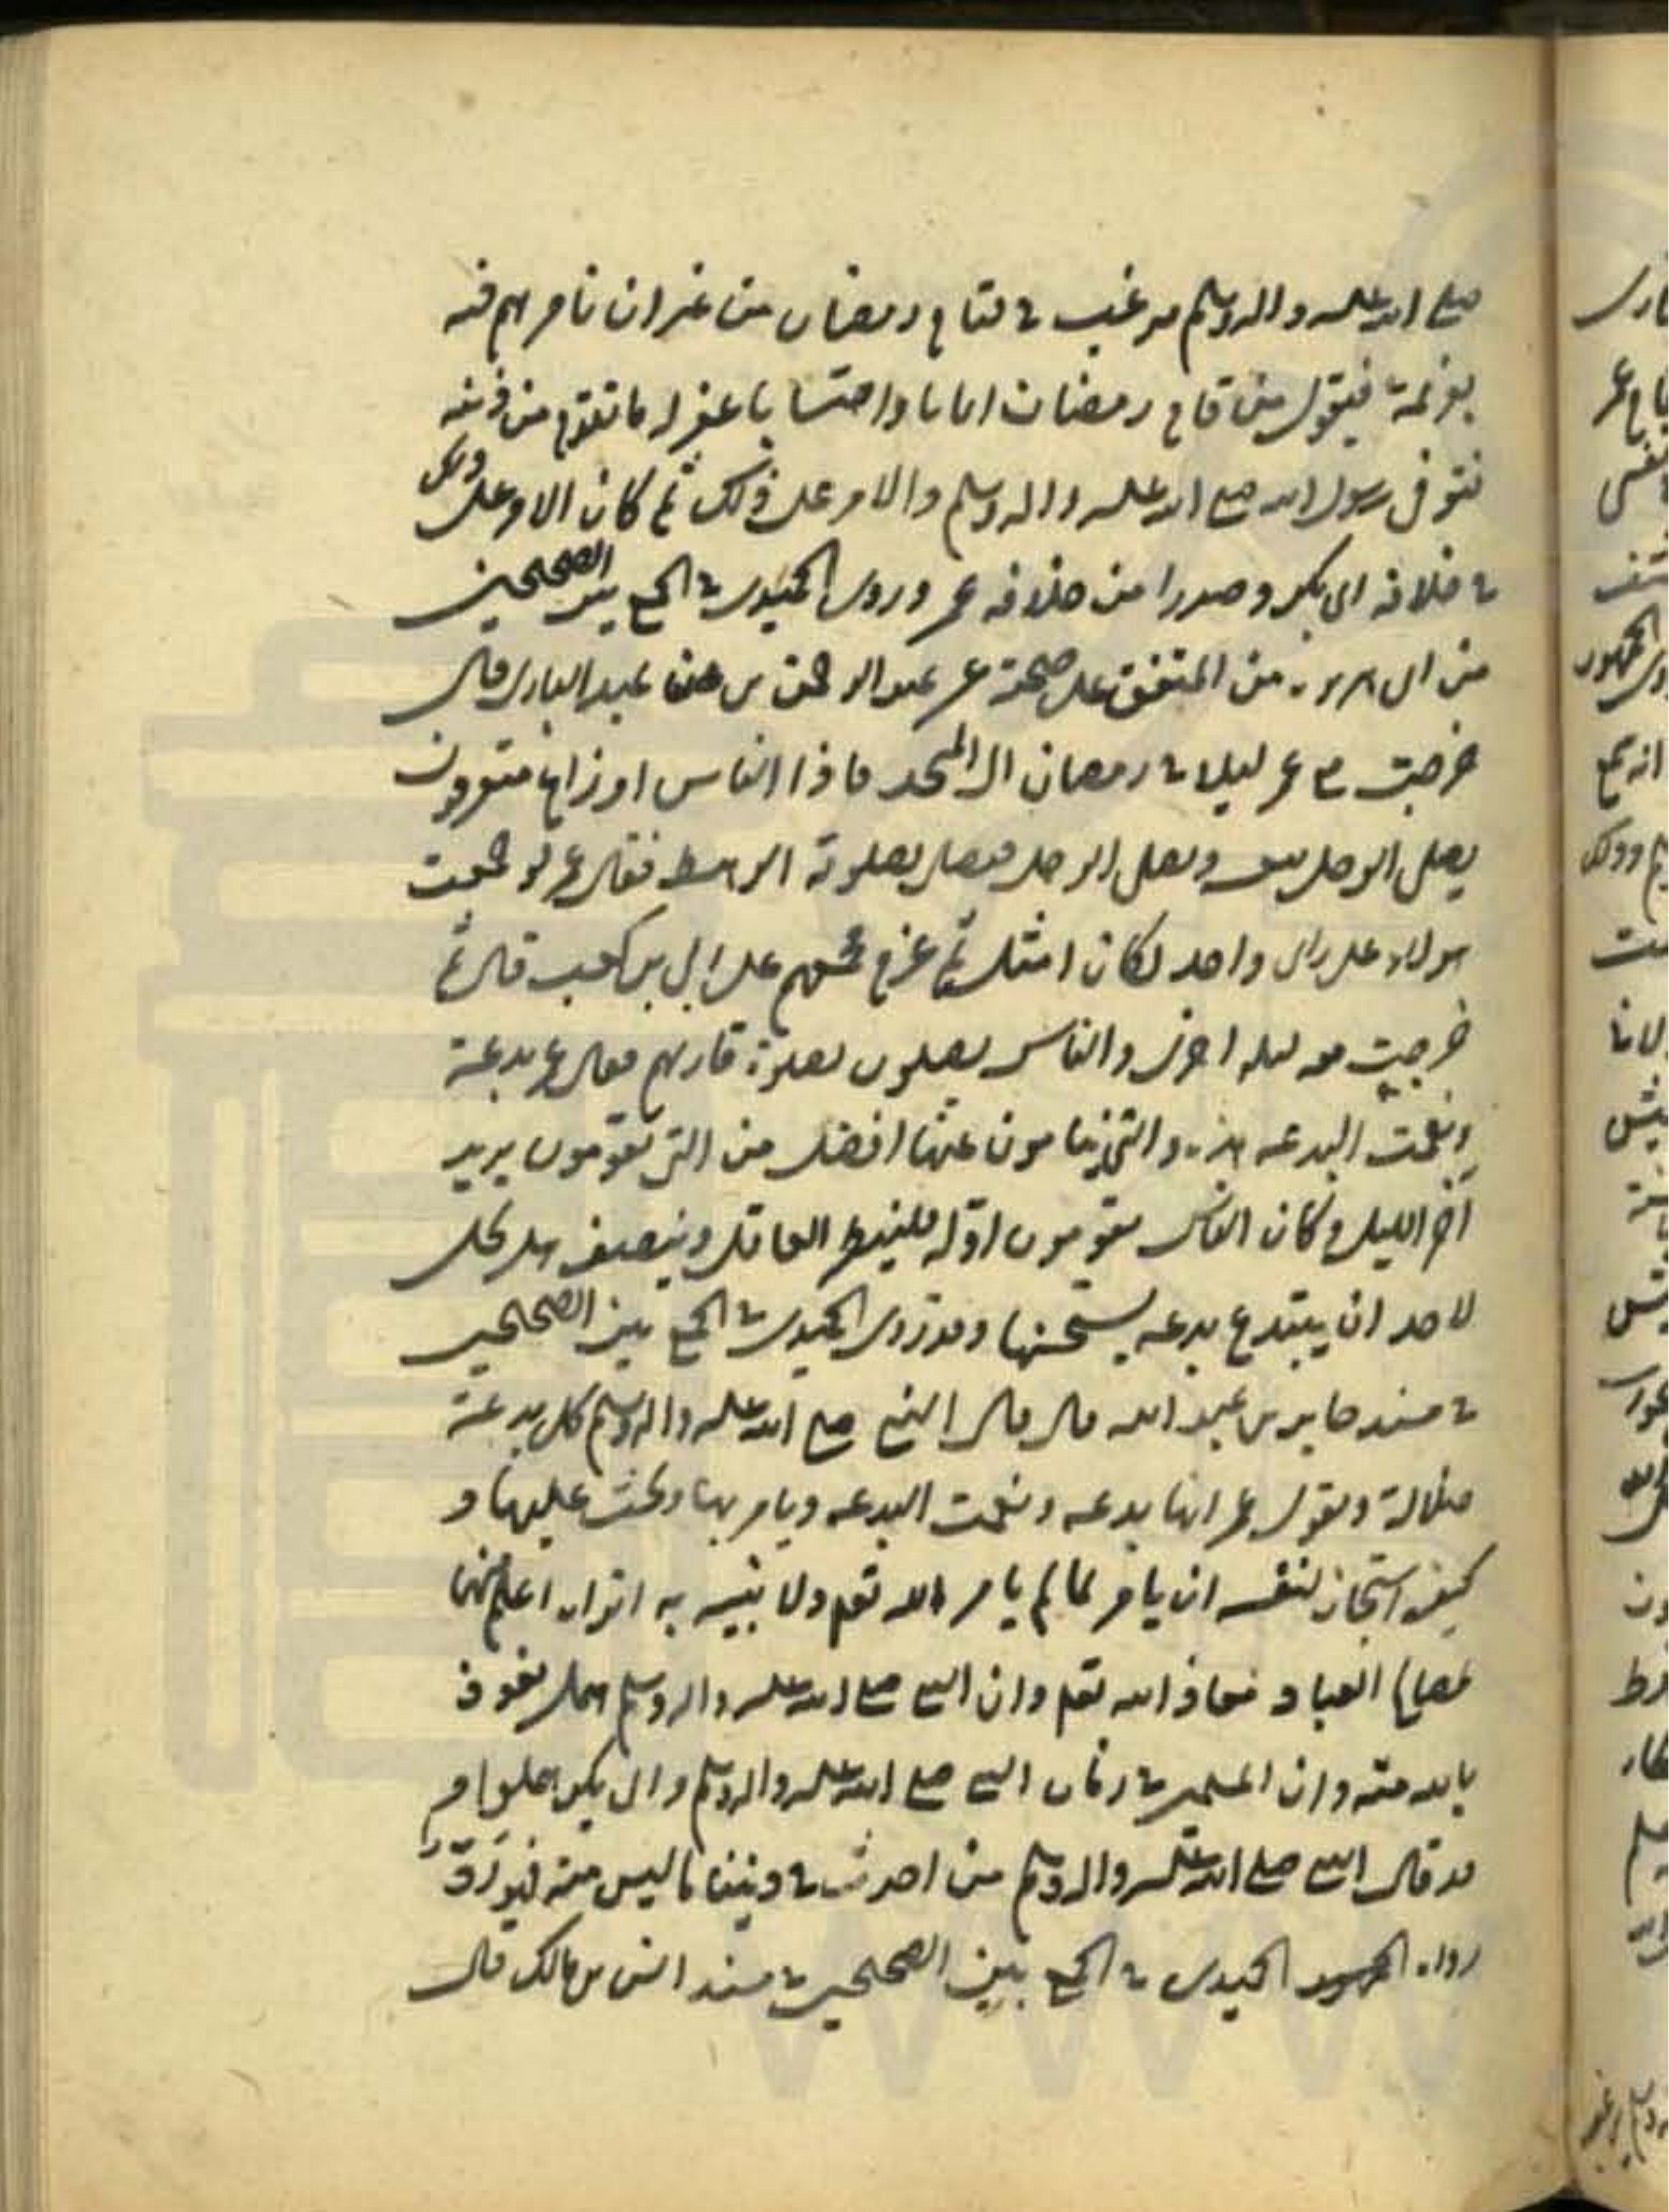 صلى الله عليه واله وسلم يرغب في قيام رمضان من غير ان يامرهم فيه
بعزيمة فيقول من قام رمضان ايمانا واحتسابا غفر له ما تقدم من ذنبه
فتوفى رسول الله صلى الله عليه واله وسلم والامر على ذلك ثم كان الامر على ذلك
في خلافة ابي بكر وصدرا من خلافه عمر وروى الحميدي في الجمع بين الصحيحين
من المتفق على صحته عن عبد الرحمن بن عبد القاري قال
خرجت مع عمر ليلة في رمضان الى المسجد فاذا الناس اوزاع متفرقون
يصلي الرجل لنفسه ويصلي الرجل فيصلي بصلوته الرهط فقال عمر لو جمعت
هولاء على رای واحد لكان امثل ثم عزم فجمعهم على ابي بن كعب قال ثم
خرجت معه ليله اخرى والناس يصلون بصلوة قاريهم فقال عمر بدعة
ونعمت البدعه هذه والتي ينامون عنها افضل من التي يقومون يريد
آخر الليل وكان الناس يقومون اوله فلينظر العاقل وينصف هل يحل
لاحد ان يبتدع بدعه يستحسنها وقد روى الحميدي في الجمع بين الصحيحين
في مسند جابر بن عبد الله قال قال النبي صلى الله عليه واله وسلم كل بدعة
ضلالة ويقول عمر انها بدعه ونعمت البدعه ويامر بها ويحث عليها و
كيف استجاز لنفسه ان يامر بما لم يامر الله تعلى ولا نبيه به اتراه اعلم منهما
بمصالح العباد معاذ الله تعلى وان النبي صلى الله عليه واله وسلم اهمل نعوذ
بالله منه وان المسلمين في زمان النبي صلى الله عليه واله وسلم وابي بكر اهملوا و
قد قال النبي صلى الله عليه واله وسلم من احدث في ديننا ما ليس منه فهو ردّ
رواه الحميدي في الجمع بين الصحيحين في مسند انس بن مالك قال